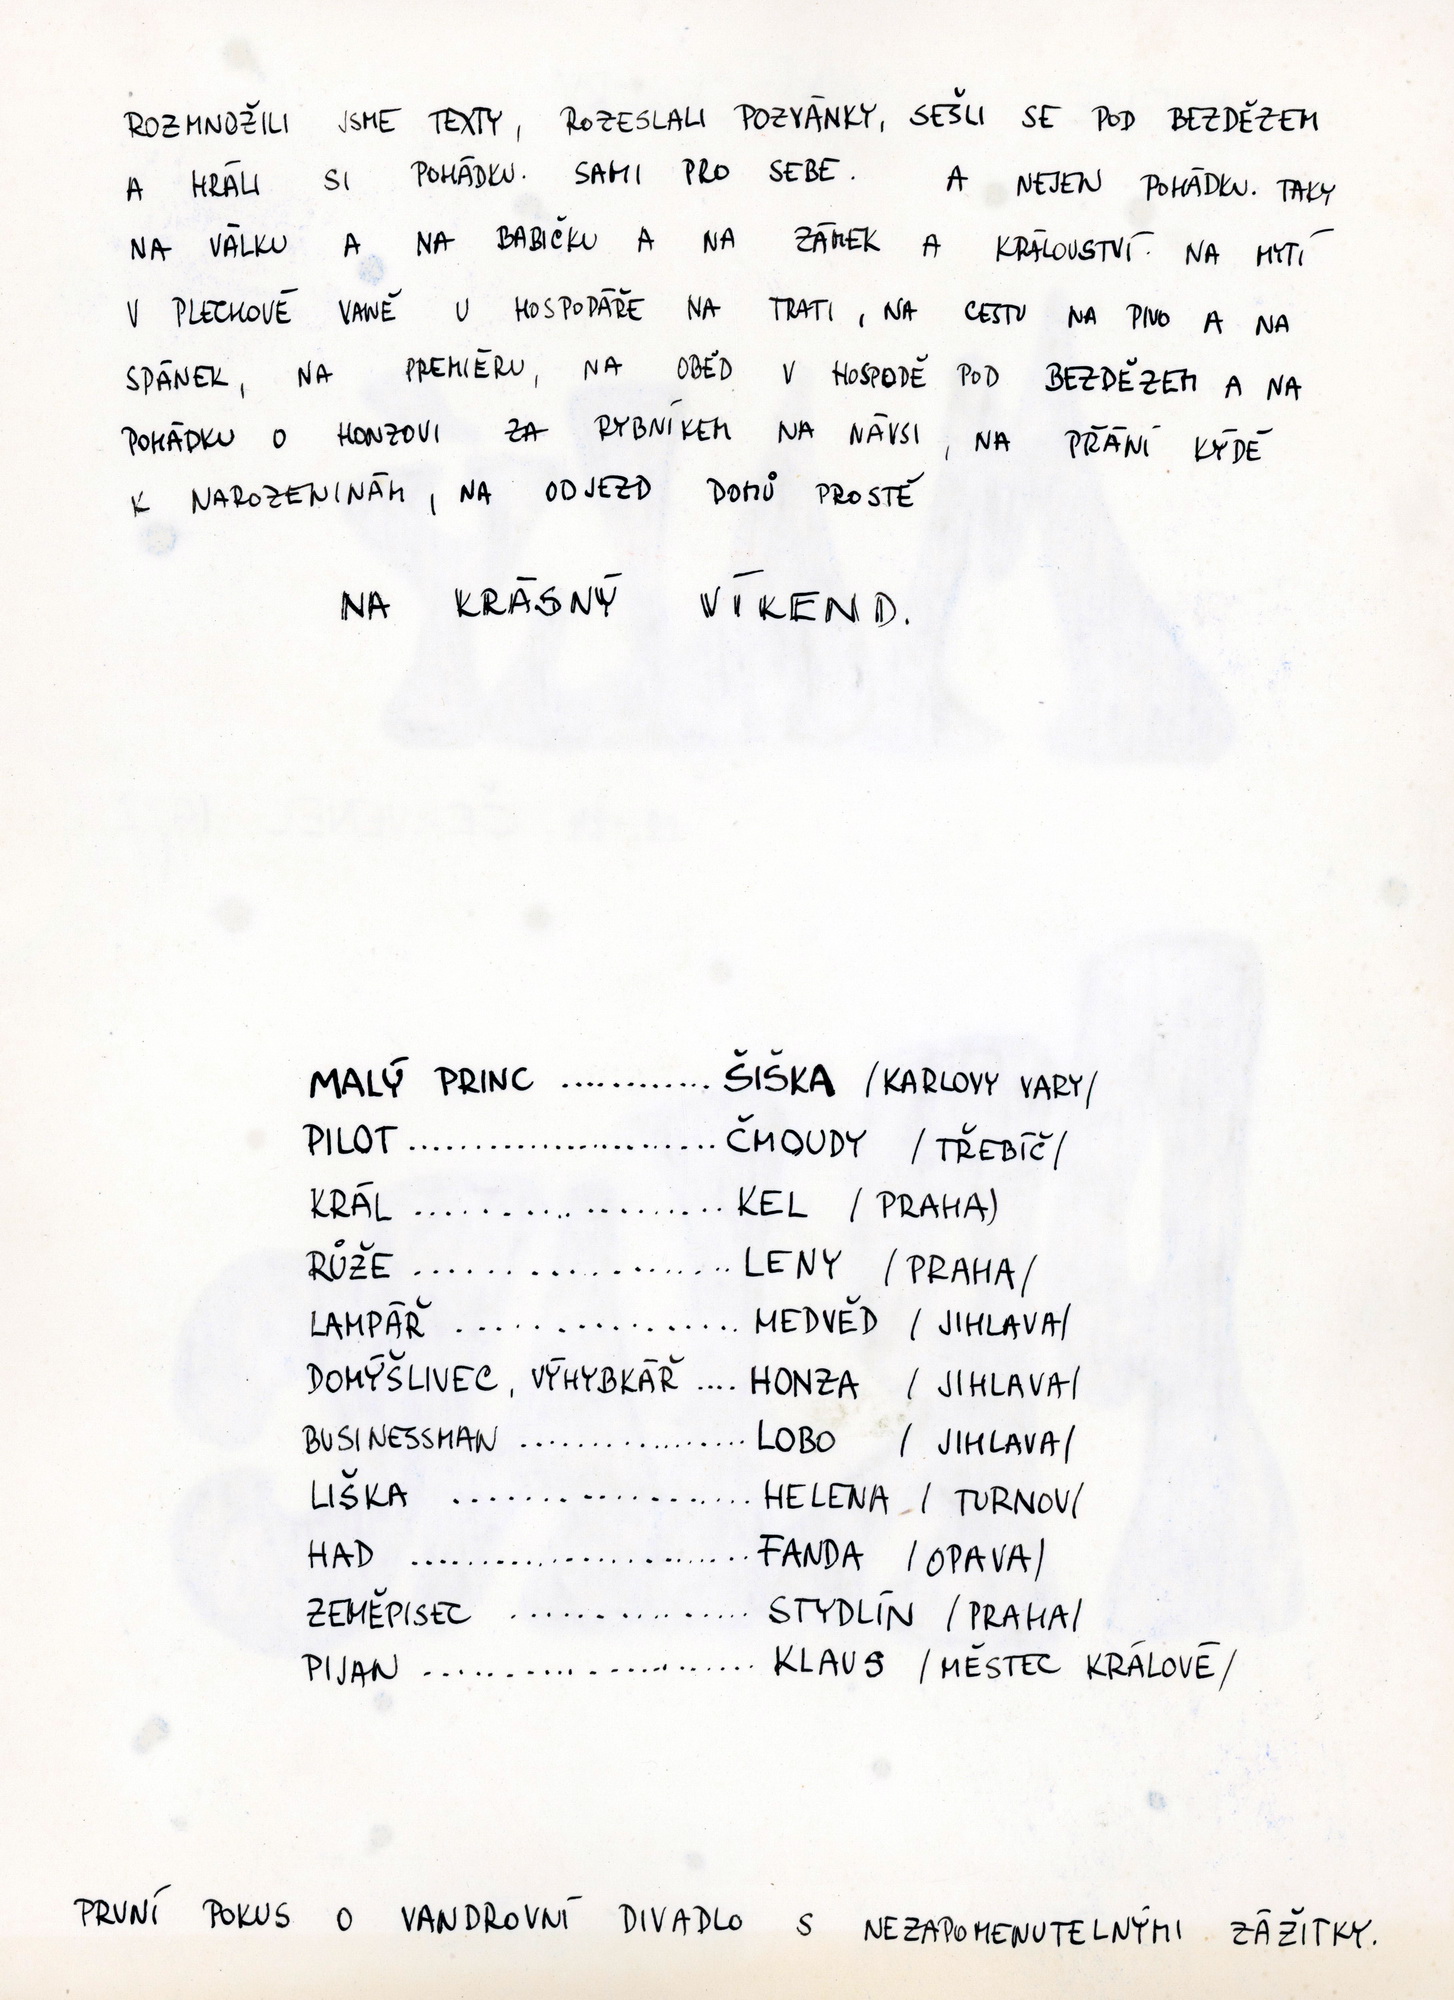 ROZMNOŽILI JSME TEXTY, ROZESLALI POZVÁNKY, SEŠLI SE POD BEZDĚZEM
A HRÁLI SI POHÁDKU. SAMI PRO SEBE. A NEJEN POHÁDKU. TAKY
NA VÁLKU A NA BABIČKU A NA ZÁMEK A KRÁLOVSTVÍ. NA MYTÍ
V PLECHOVÉ VANĚ U HOSPODÁŘE NA TRATI, NA CESTU NA PIVO A NA
SPÁNEK, NA PREMIÉRU, NA OBĚD V HOSPODĚ POD BEZDĚZEM A NA
POHÁDKU O HONZOVI ZA RYBNÍKEM NA NÁVSI, NA PŘÁNÍ KÝDĚ
K NAROZENINÁM, NA ODJEZD DOMŮ PROSTĚ
NA KRÁSNÝ VÍKEND.
MALÝ PRINC ............ ŠIŠKA /KARLOVY VARY/
PILOT ........................ ČMOUDY /TŘEBÍČ/
KRÁL ..................... KEL /PRAHA)
RŮŽE ..................... LENY /PRAHA/
LAMPÁŘ .................. MEDVĚD / JIHLAVA/
DOMÝŠLIVEC, VÝHYBKÁŘ .... HONZA / JIHLAVA/
BUSINESSMAN .................. LOBO / JIHLAVA/
LIŠKA ..................... HELENA / TURNOV/
HAD ........................ FANDA /OPAVA/
ZEMĚPISEC ................ STYDLÍN /PRAHA/
PIJAN ........................ KLAUS /MĚSTEC KRÁLOVÉ/
PRVNÍ POKUS O VANDROVNÍ DIVADLO S NEZAPOMENUTELNÝMI ZÁŽITKY.